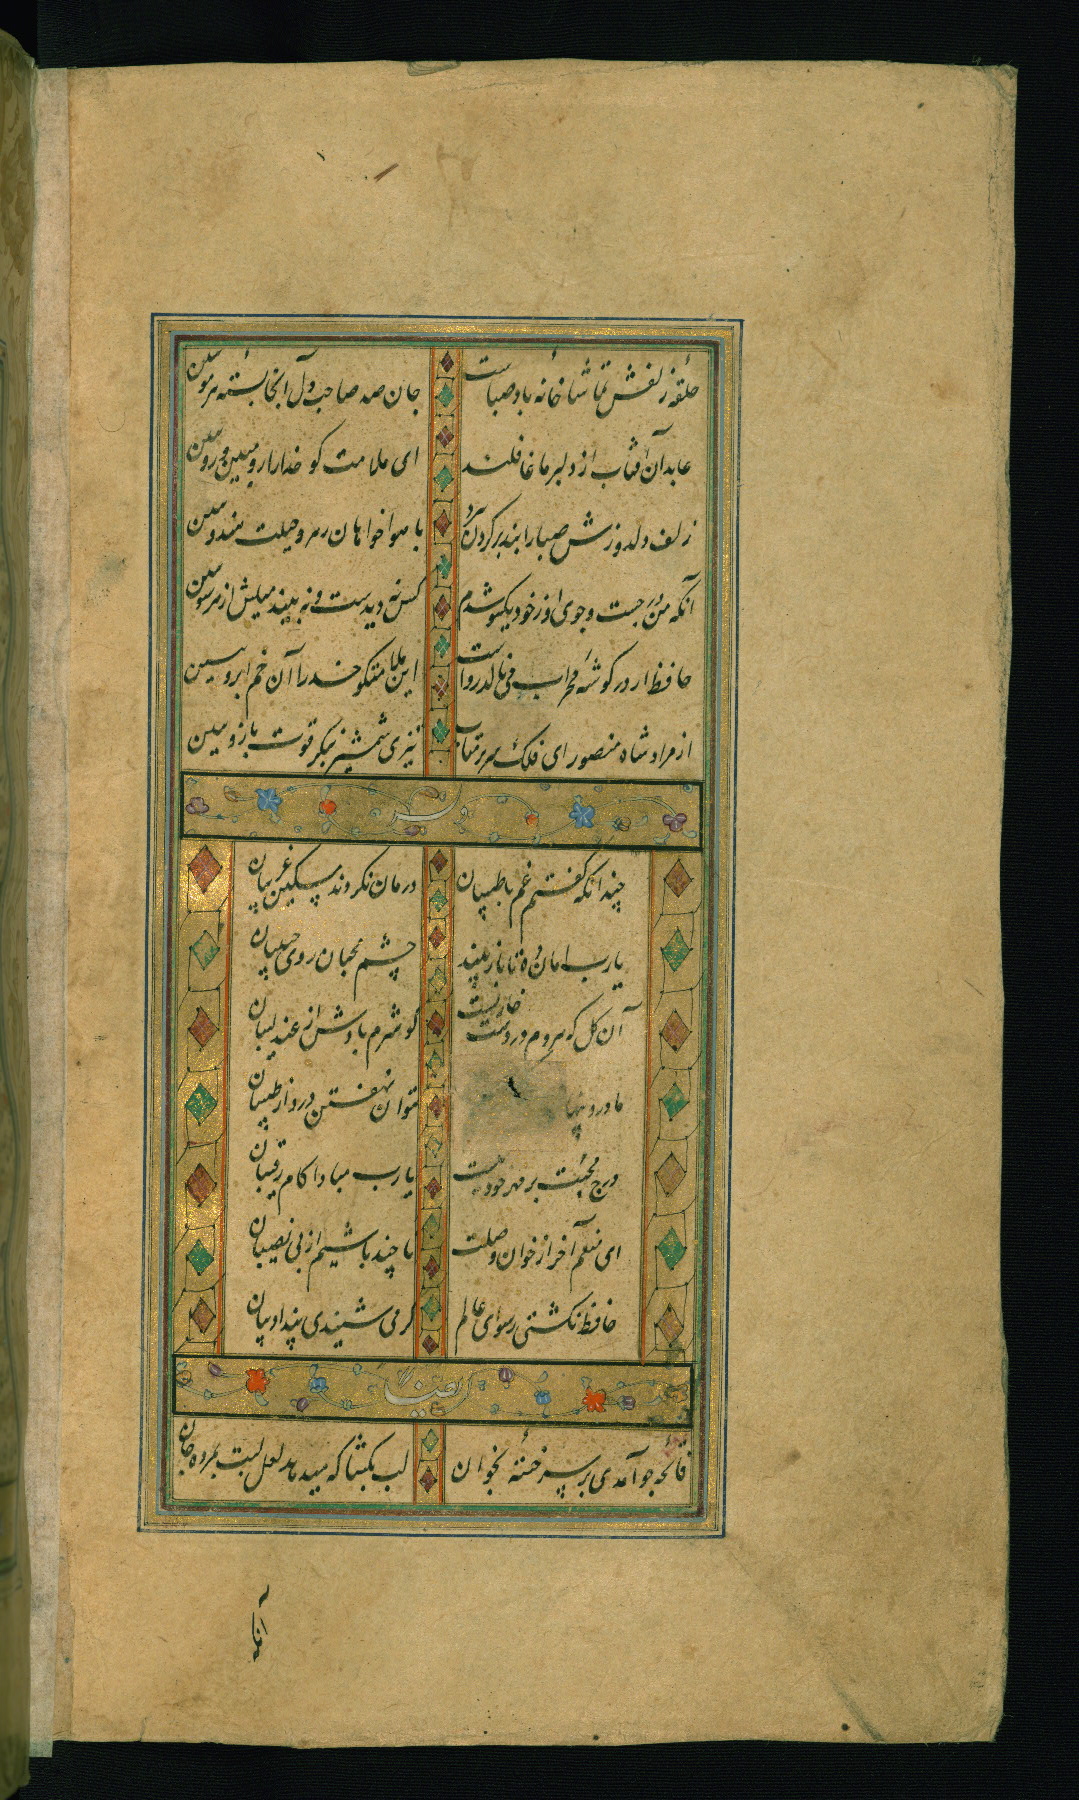 حلقه زلفش تماشاخانه باد صباست جان صد صاحب دل آنجا بسته مو ببین
عابدان آفتاب از دلبر ما غافلند ای ملامت گو خدا را رو مبین و رو ببین
زلف دلدوزش صبا را بند بر گردن نهد با هواخواهان رهرو حیلت هندو ببین
آنکه من در جست و جوی او ز خود یکسو شدم کس ندیدست و نه بیند مثلش از هر سو ببین
حافظ ار در گوشه محراب می نالد رواست ای ملامتگو خدا را آن خم ابرو ببین
از مراد شاه منصور ای فلک سر بر متاب تیزی شمشیر بنگر قوت بازو ببین
چندانکه گفتم غم با طبیبان درمان نکردند مسکین غریبان
یارب امان ده تا باز بیند چشم محبان روی حبیبان
آن گل که هر دم در دست خاریست گو شرم بادش از عندلیبان
ما درد پنهان نتوان نهفتن درد از طبیبان
درج محبت بر مهر خود نیست یارب مبادا کام رقیبان
ای منعم آخر از خوان وصلت تا چند باشیم از بی نصیبان
حافظ نگشتی رسوای عالم گر می شنیدی پند ادیبان
ایضا
فاتحه چو آمدی بر سر خسته بخوان لب بگشا که میدهد لعل لبت بمرده جان
آنکه